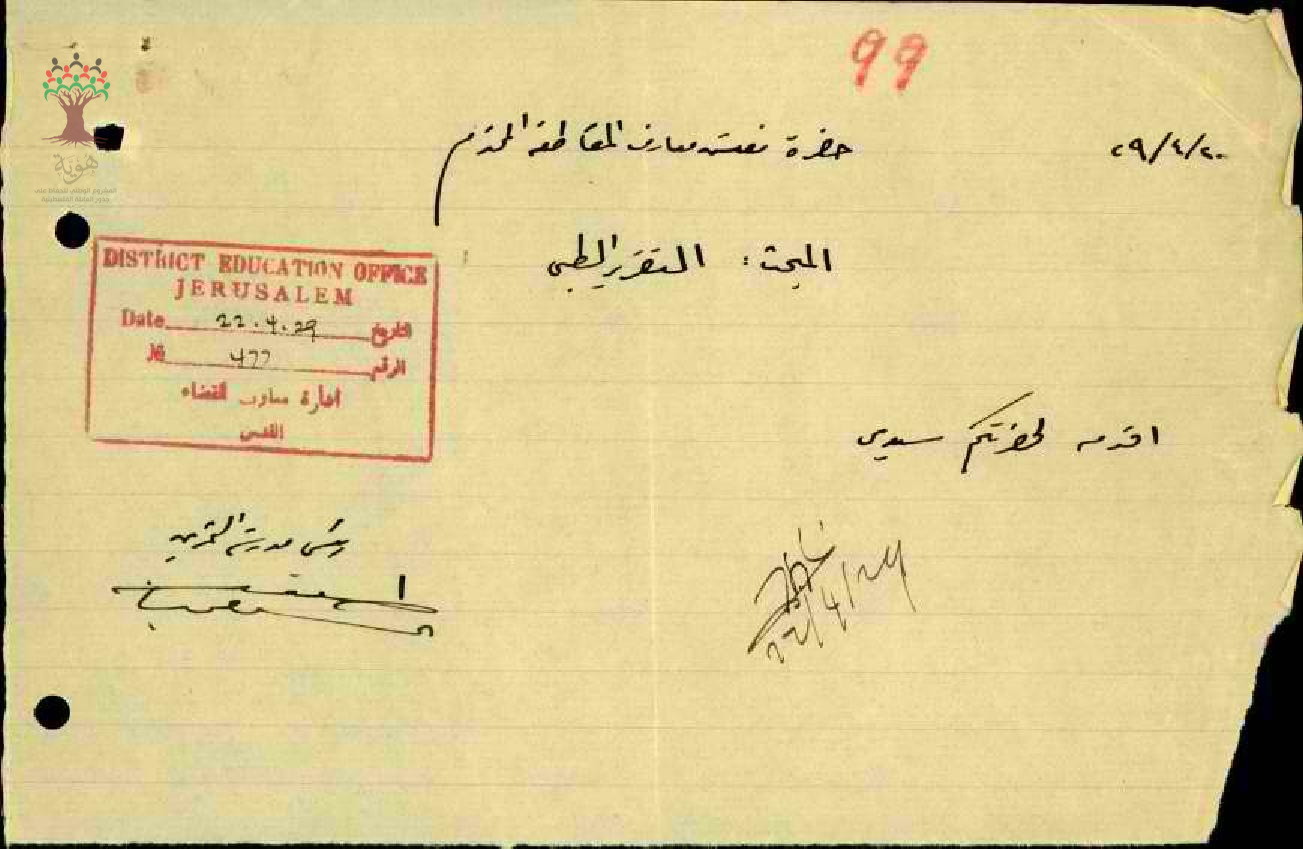 99
٢٩/٤/٢٠
حضرة مفتش معارف المقاطعة المحترم
المبحث: التقرير الطبي
DISTRICT EDUCATION OFFICE
JERUSALEM
Date 22.4.29 التاريخ
№ 477 الرقم
ادارة معارف القضاء
القدس
اقدمه لحضرتكم سيدي
رئيس مدرسة
22/4/29
هوية